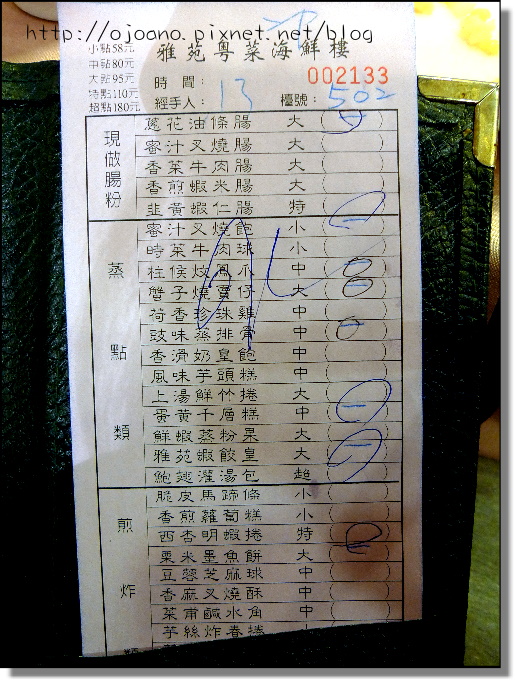 http://ojoano.pixnet.net/blog
雅苑粵菜海鮮樓
小點58元
中點80元
大點95元
特點110元
超點180元
時間：
002133
經手人：13 檯號：502
現做腸粉
蔥花油條腸 大 一
蜜汁叉燒腸 大
香菜牛肉腸 大
香煎蝦米腸 大
韭黃蝦仁腸 特
蒸點類
蜜汁叉燒飽 小 一
時菜牛肉球 小
柱侯炆鳳爪 中
蟹子燒賣仔 大
荷香珍珠雞 中
豉味蒸排骨 中 一
香滑奶皇飽 中
風味芋頭糕 中
上湯鮮竹捲 大
蛋黃千層糕 中 一
鮮蝦蒸粉果 大
雅苑蝦餃皇 大 一
鮑翅灌湯包 超
煎炸
脆皮馬蹄條 小
香煎蘿蔔糕 小
西杏明蝦捲 特
粟米墨魚餅 大
豆蓉芝麻球 中
香麻叉燒酥 中
菜甫鹹水角 中
芋絲炸春捲